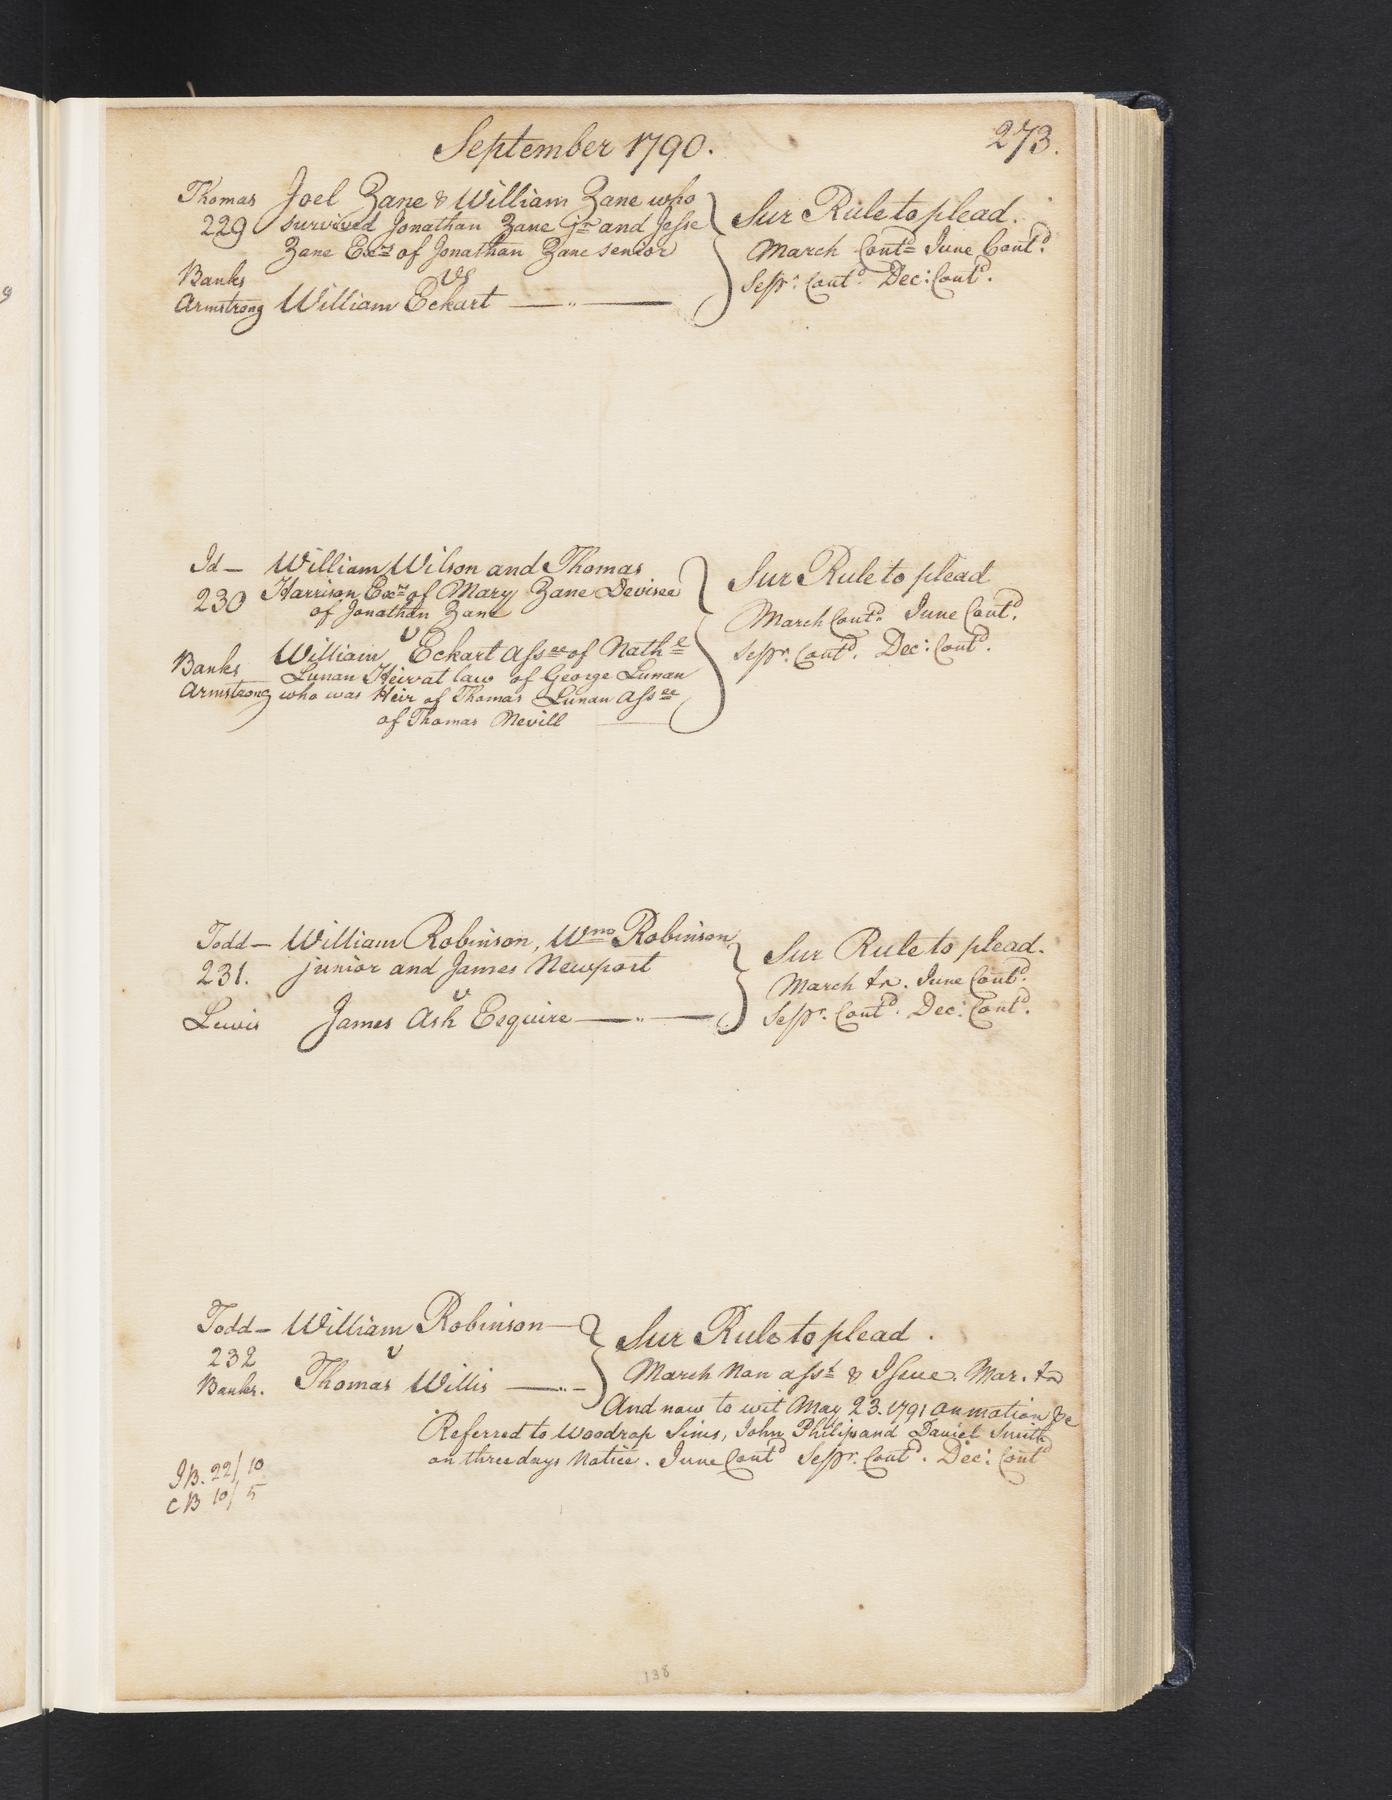 September 1790.
273.
Thomas Joel Zane & William Zane who
229 survived Jonathan Zane Jr and Jesse
Zane Exrs of Jonathan Zane senior
Sur Rule to plead.
March Contd June Contd.
Sepr. Contd Dec: Contd.
Banks vs
Armstrong William Eckart
Id — William Wilson and Thomas
230 Harrison Exrs of Mary Zane Devisee
of Jonathan Zane
v
Sur Rule to plead
March Contd. June Contd.
Sepr. Contd. Dec: Contd.
William Eckart Assee of Nathl
Banks Lunan Heir at law of George Lunan
Armstrong who was Heir of Thomas Lunan Assee
of Thomas Nevill
Todd — William Robinson, Wm Robinson
231. junior and James Newport
v
Lewis James Ash Esquire
Sur Rule to plead.
March tr. June Contd.
Sepr. Contd. Dec: Contd.
Todd — William Robinson
232 v
Banks. Thomas Willis
Sur Rule to plead.
March Non asst & Issue. Mar. tr
And now to wit May 23. 1791 on motion &c
Referred to Woodrop Sims, John Philips and Daniel Smith
on three days Notice. June Contd Sepr. Contd. Dec: Contd
JB. 22/10
CB 10/5
138